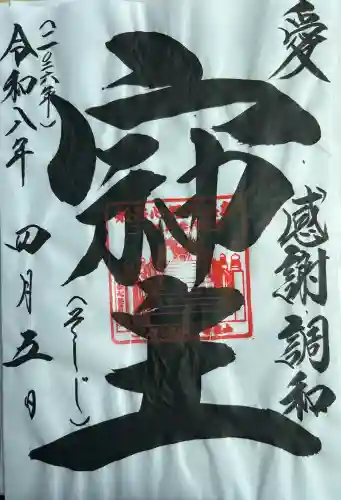 愛
感謝調和
(そしじ)
令和八年
(二〇二六年)
四月五日